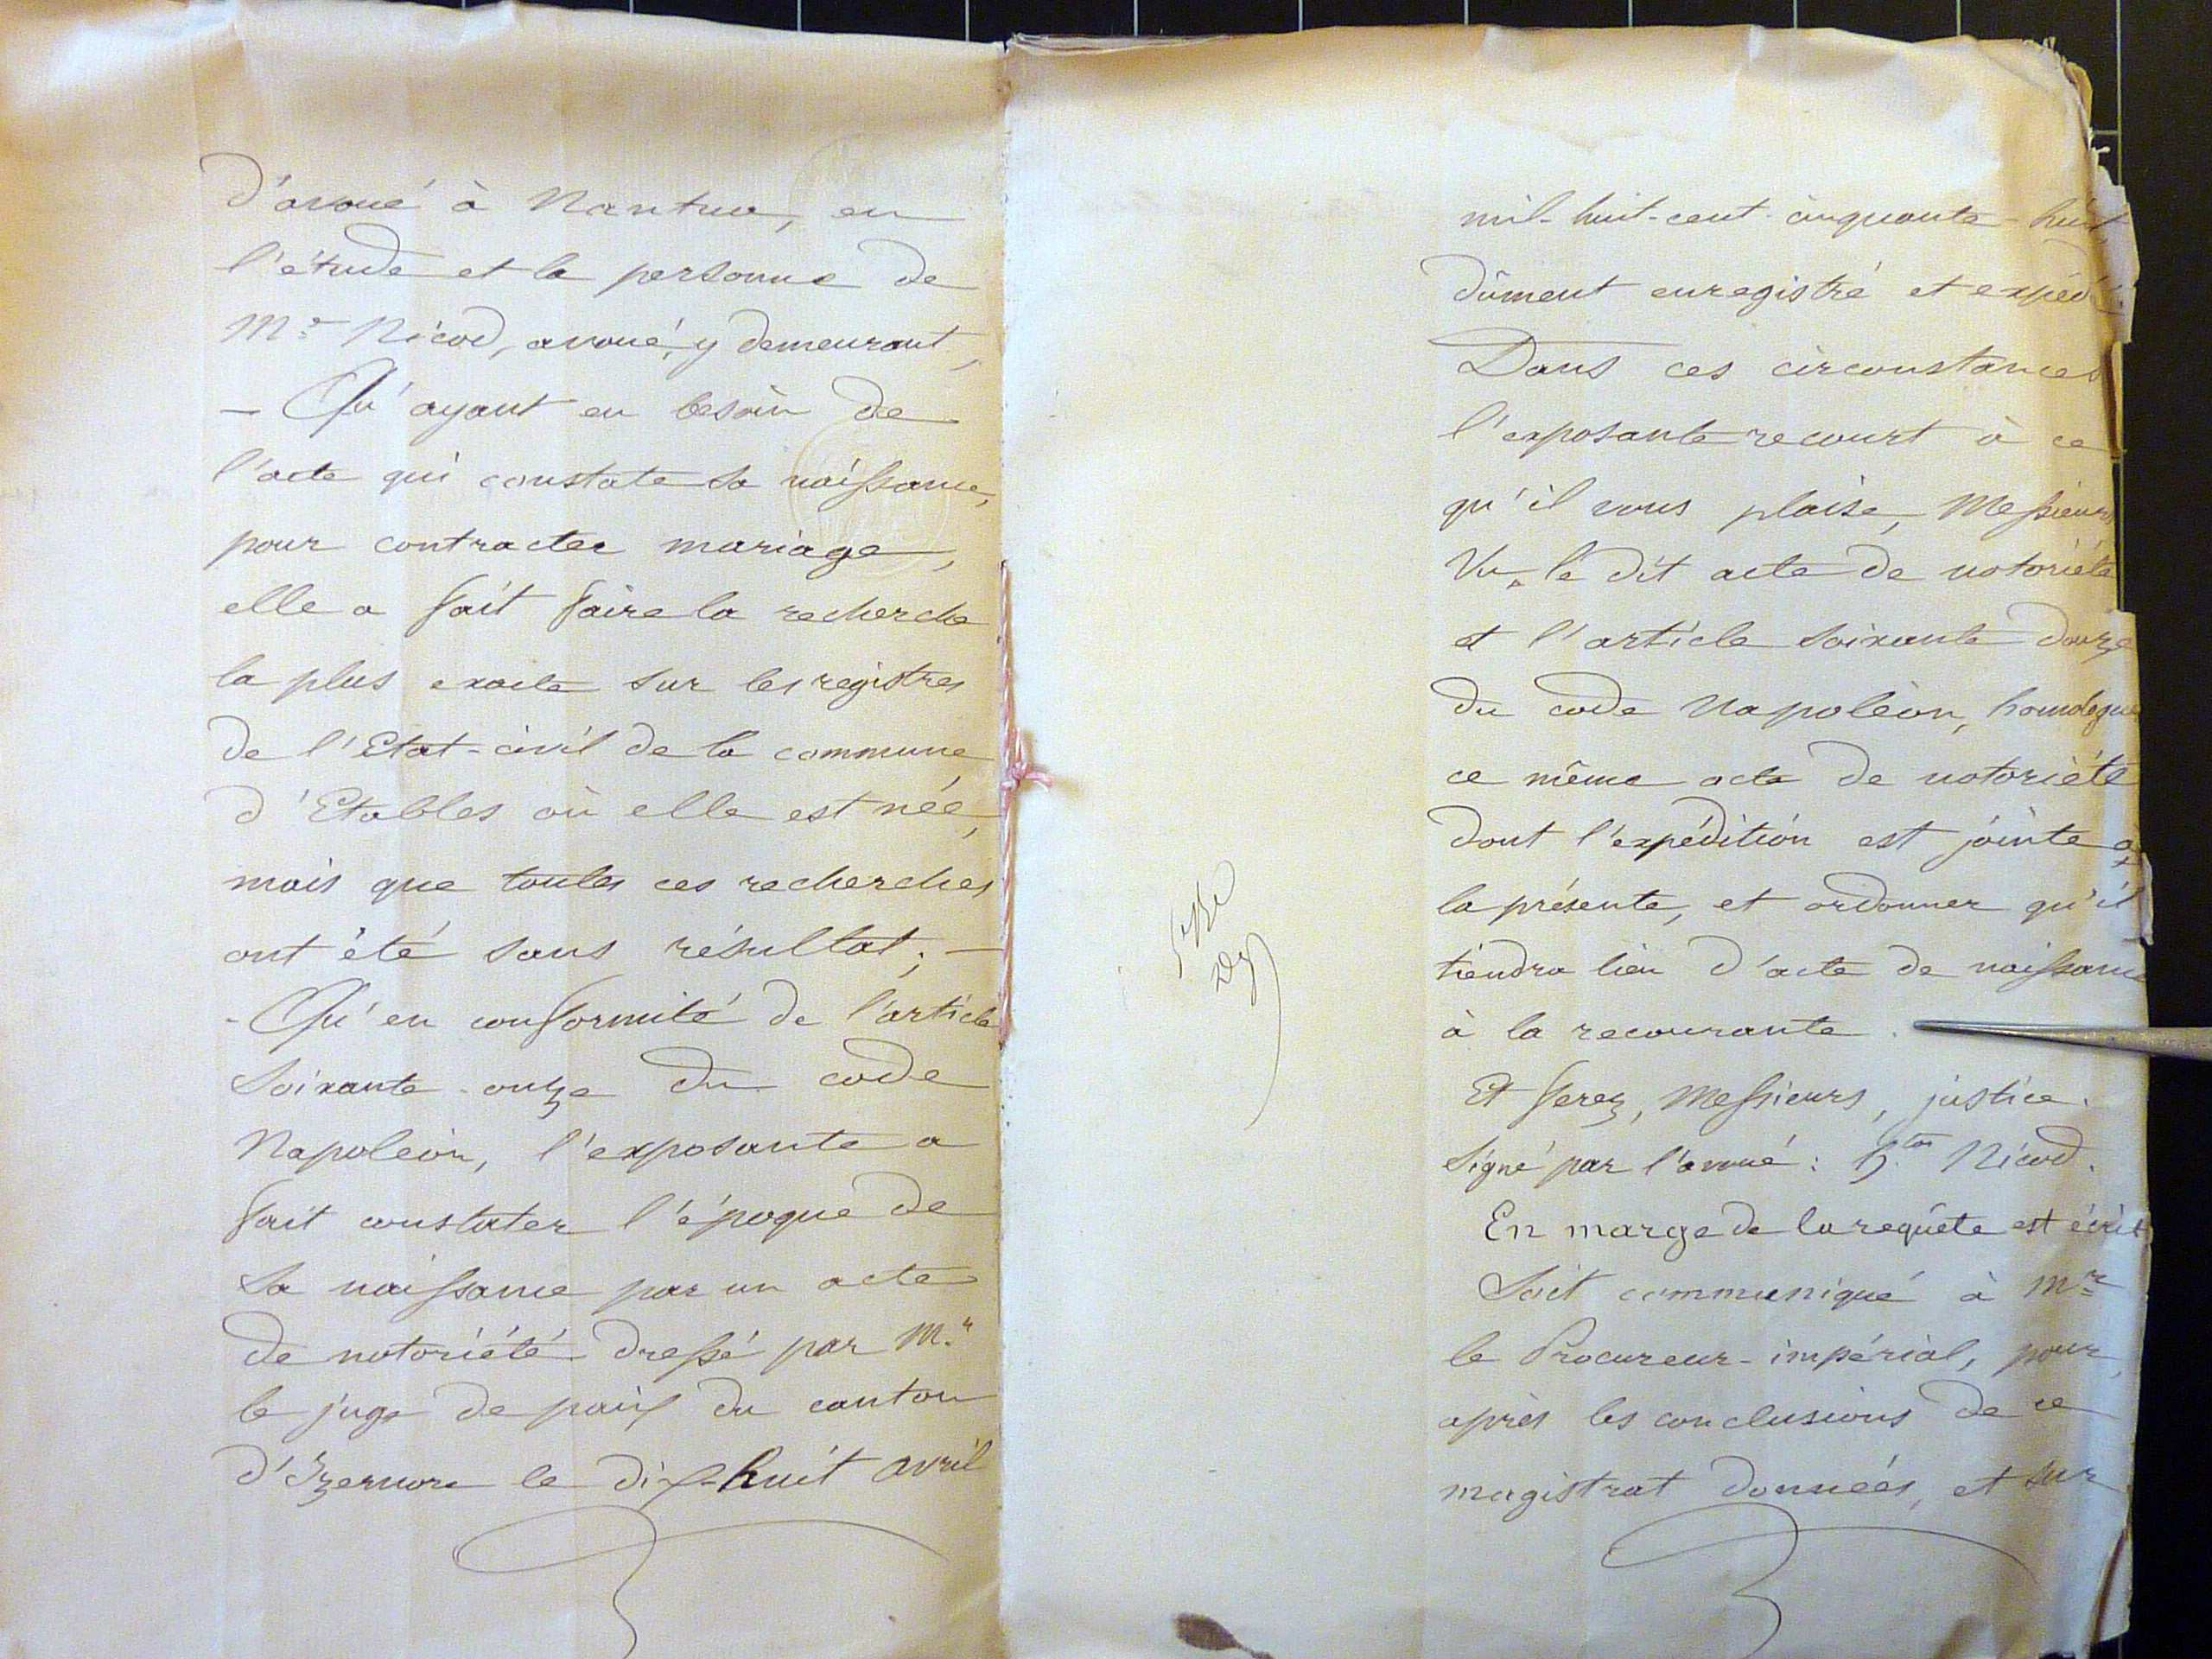 d'avoué à Nantua, en
l'étude et la personne de
Mr. Nicod, avoué, y demeurant,
— Qu'ayant eu besoin de
l'acte qui constate sa naissance,
pour contracter mariage,
elle a fait faire la recherche
la plus exacte sur les registres
de l'Etat-civil de la commune
d'Etables où elle est née,
mais que toutes ces recherches
ont été sans résultat; —
- Qu'en conformité de l'article
soixante-onze du code
Napoléon, l'exposante a
fait constater l'époque de
sa naissance par un acte
de notoriété dressé par Mr.
le juge de paix du canton
d'Izernore le dix-huit avril
mil-huit-cent-cinquante-huit,
dûment enregistré et expédié
Dans ces circonstances
l'exposante recourt à ce
qu'il vous plaise, Messieurs
Vu le dit acte de notoriété
et l'article soixante douze
du code Napoléon, homologuer
ce même acte de notoriété
dont l'expédition est jointe à
la présente, et ordonner qu'il
tiendra lieu d'acte de naissance
à la recourante.
Et ferez, Messieurs, justice.
Signé par l'avoué: Nicod.
En marge de la requête est écrit
Soit communiqué à Mr.
le Procureur-impérial, pour,
après les conclusions de ce
magistrat données, et sur